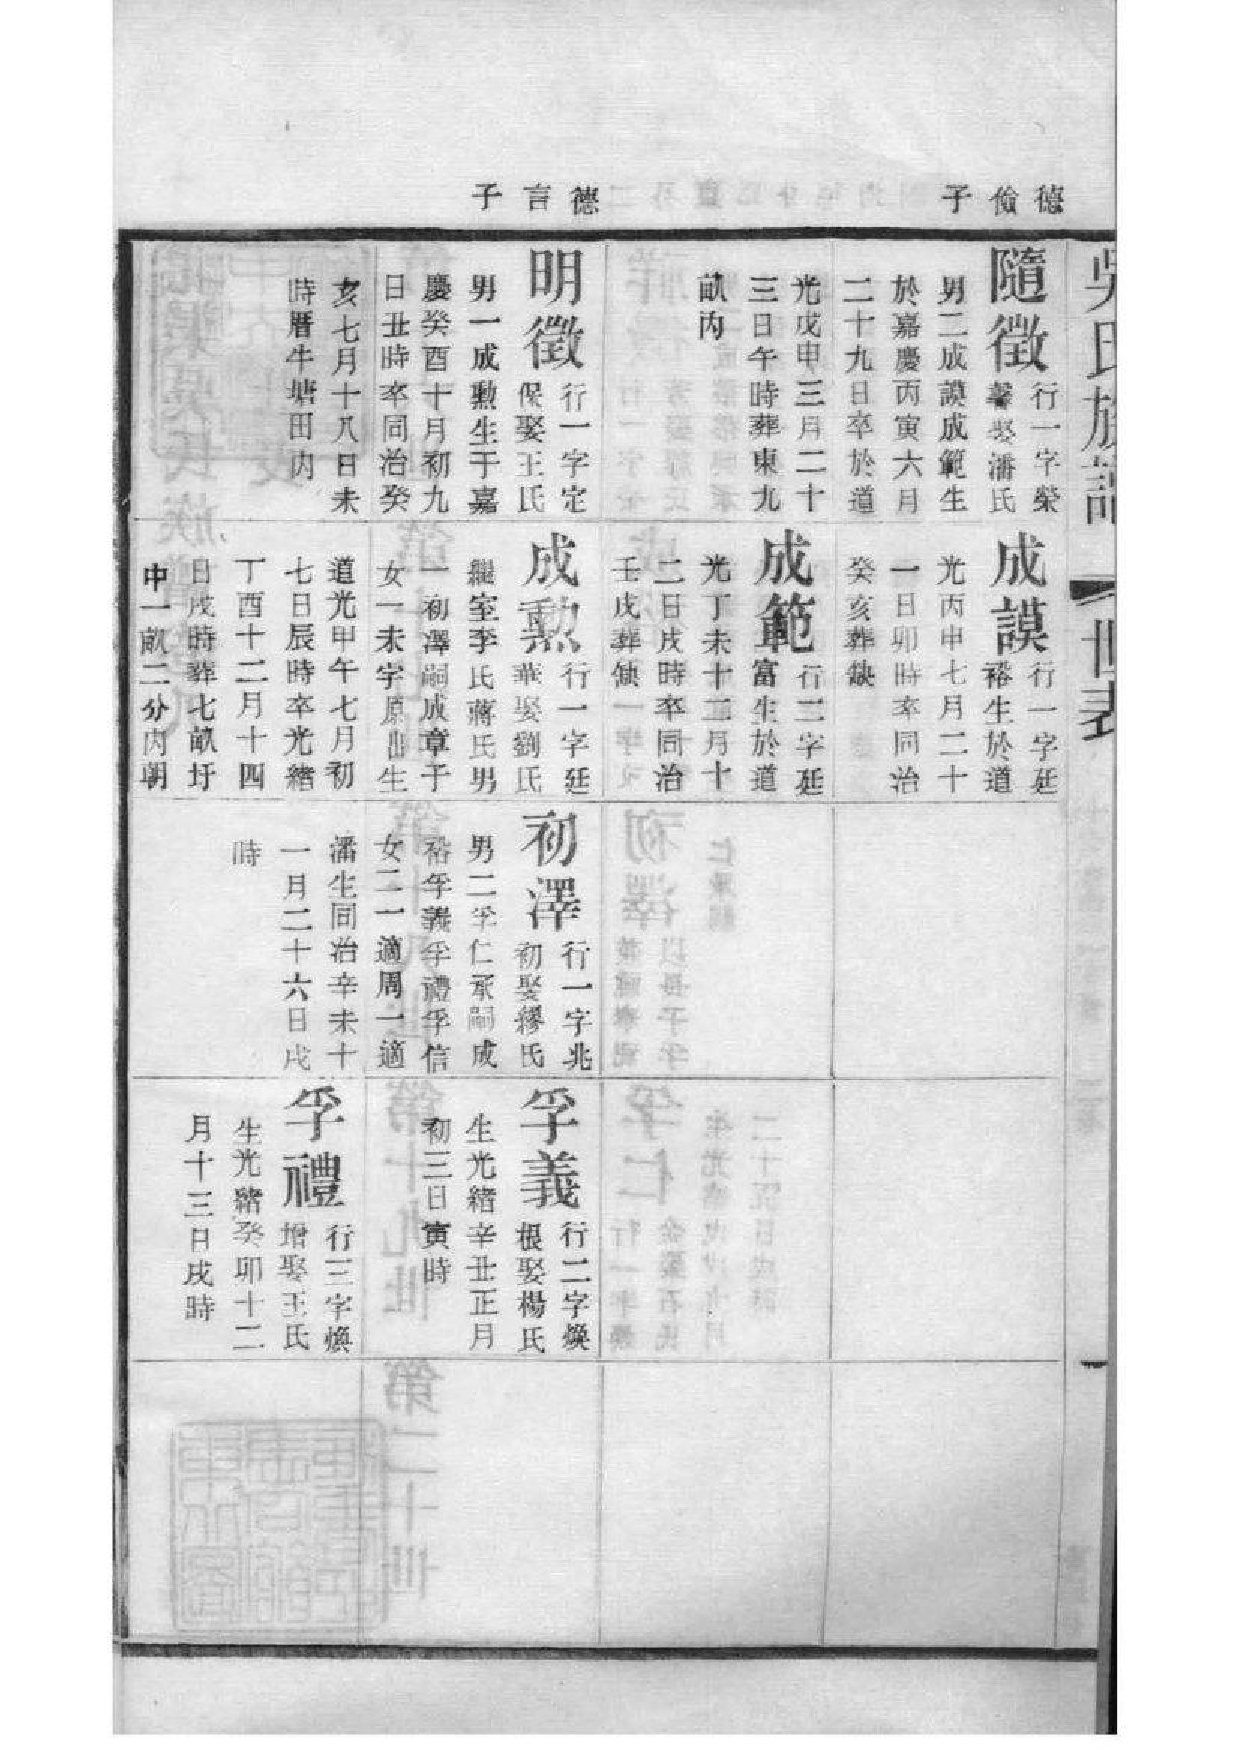 吳氏族譜
世表
德儉子
隨徵
行一字榮
馨娶潘氏
男二成謨成範生
於嘉慶丙寅六月
二十九日卒於道
光戊申三月二十
三日午時葬東九
畝內
成謨
行一字廷
裕生於道
光丙申七月二十
一日卯時卒同治
癸亥葬缺
成範
行二字廷
富生於道
光丁未十二月十
二日戌時卒同治
壬戌葬缺
德言子
明徵
行一字定
保娶王氏
男一成勲生于嘉
慶癸酉十月初九
日丑時卒同治癸
亥七月十八日未
時曆牛塘田內
成勲
行一字廷
華娶劉氏
繼室李氏蔣氏男
一初澤嗣成章子
女一未字原出生
道光甲午七月初
七日辰時卒光緒
丁酉十二月十四
日戌時葬七畝圩
中一畝二分內朝
初澤
行一字兆
初娶繆氏
男二孚仁承嗣成
裕孚義孚禮孚信
女二一適周一適
潘生同治辛未十
一月二十六日戌
時
孚義
行二字煥
根娶楊氏
生光緒辛丑正月
初三日寅時
孚禮
行三字煥
增娶王氏
生光緒癸卯十二
月十三日戌時